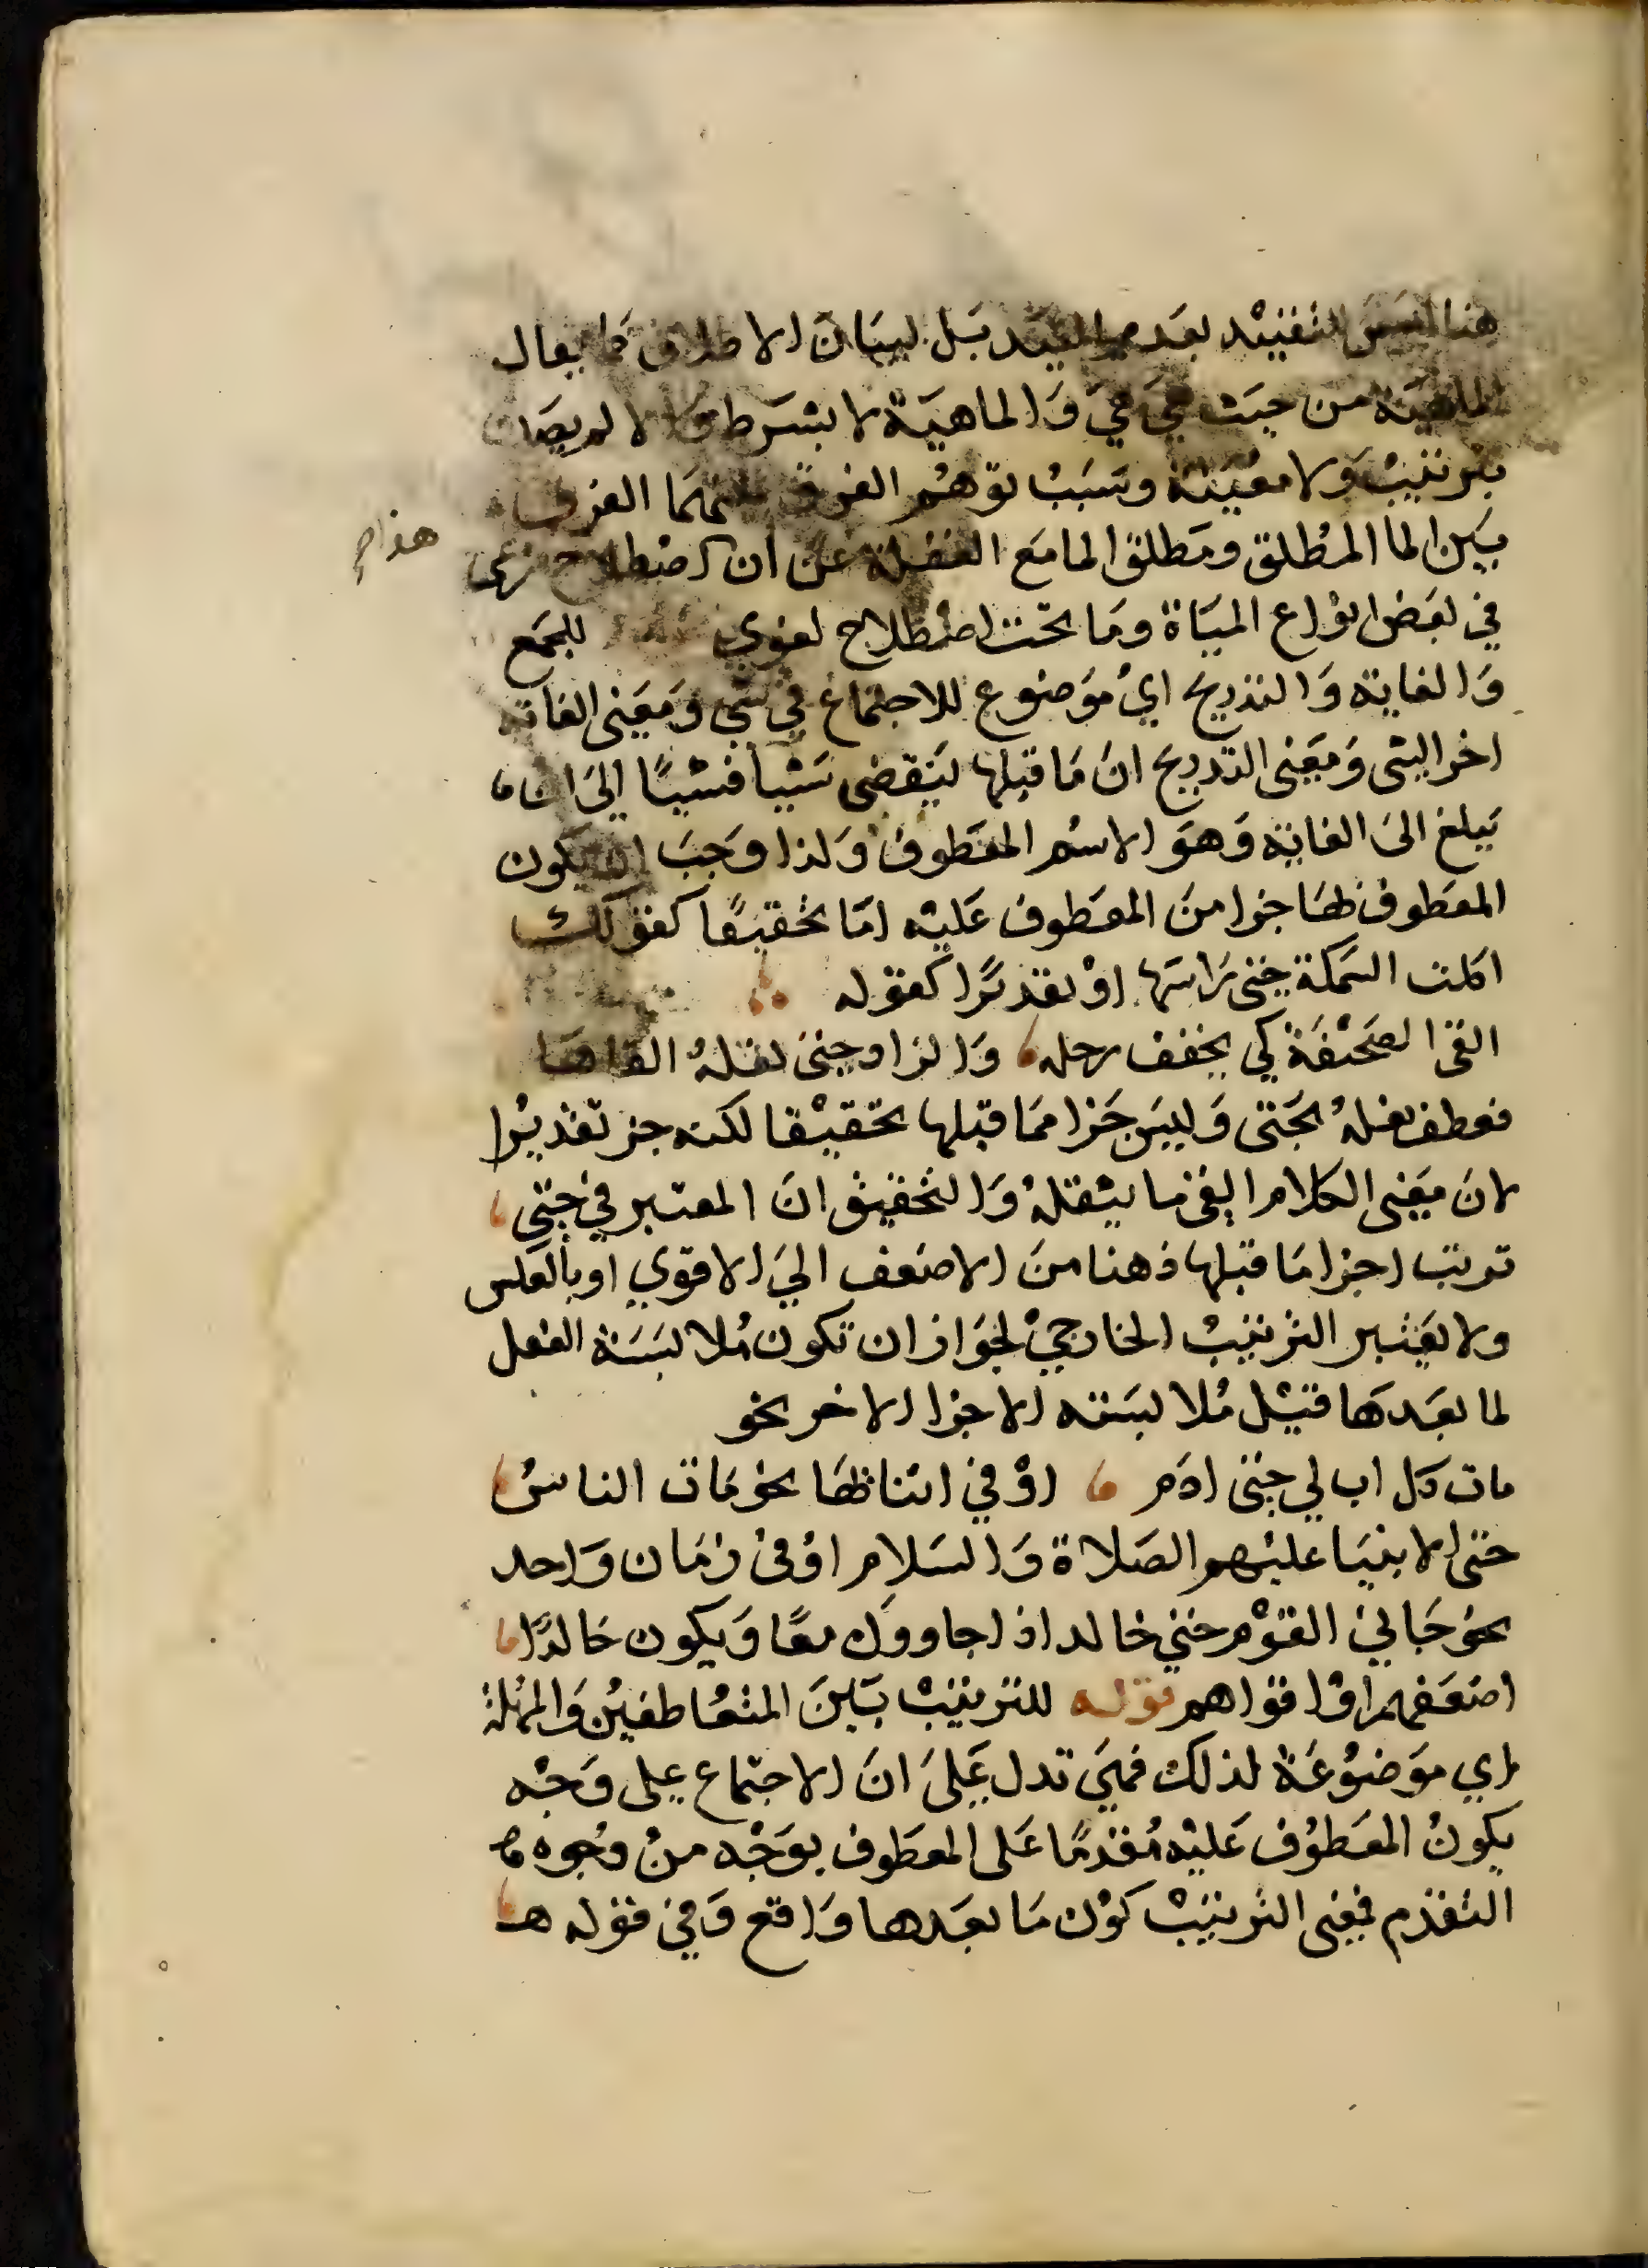 هنا ليس للتقييد بعدم القيد بل لبيان الاطلاق كما يقال
الماهية من حيث هي هي والماهية لا بشرط ولا لم يصدق
بترتيب ولا معية وسبب توهم الفرق بينهما الفرق
بين الما المطلق ومطلق الما مع الغفلة عن ان اصطلاح شرعي
هذا
في بعض انواع المياة وما نحن اصطلاح لغوي للجمع
والغاية والتدريج اي موضوع للاجتماع في شي ومعنى الغاية
اخر الشي ومعنى التدريج ان ما قبلها ينقضي شيا فشيًا الى ان
يبلغ الى الغاية وهو الاسم المعطوف ولذا وجب ان يكون
المعطوف بها جزا من المعطوف عليه اما تحقيقًا كقولك
اكلت السمكة حتى راسها او تقديرًا كقوله
القى الصحيفة كي يخفف رحله والزاد حتى نعله القاها
فعطف نعله بحتى وليس جزا مما قبلها تحقيقا لكنه جز تقديرا
لان معنى الكلام القى ما يثقله والتحقيق ان المعتبر في حتى
ترتب اجزا ما قبلها ذهنا من الاضعف الى الاقوي او بالعكس
ولا يعتبر الترتيب الخارجي لجواز ان تكون ملابسة الفعل
لما بعدها قبل ملابسته الاجزا الاخر نحو
مات كل اب لي حتى ادم او في اثنائها نحو مات الناس
حتى الانبيا عليهم الصلاة والسلام او في زمان واحد
نحو جاني القوم حتى خالد اذا جاووك معًا ويكون خالدًا
اضعفهم او اقواهم قوله للترتيب بين المتعاطفين والمهلة
اي موضوعة لذلك فهي تدل على ان الاجتماع على وجه
يكون المعطوف عليه مقدمًا على المعطوف بوجه من وجوه
التقدم فمعنى الترتيب كون ما بعدها واقع وفي قوله